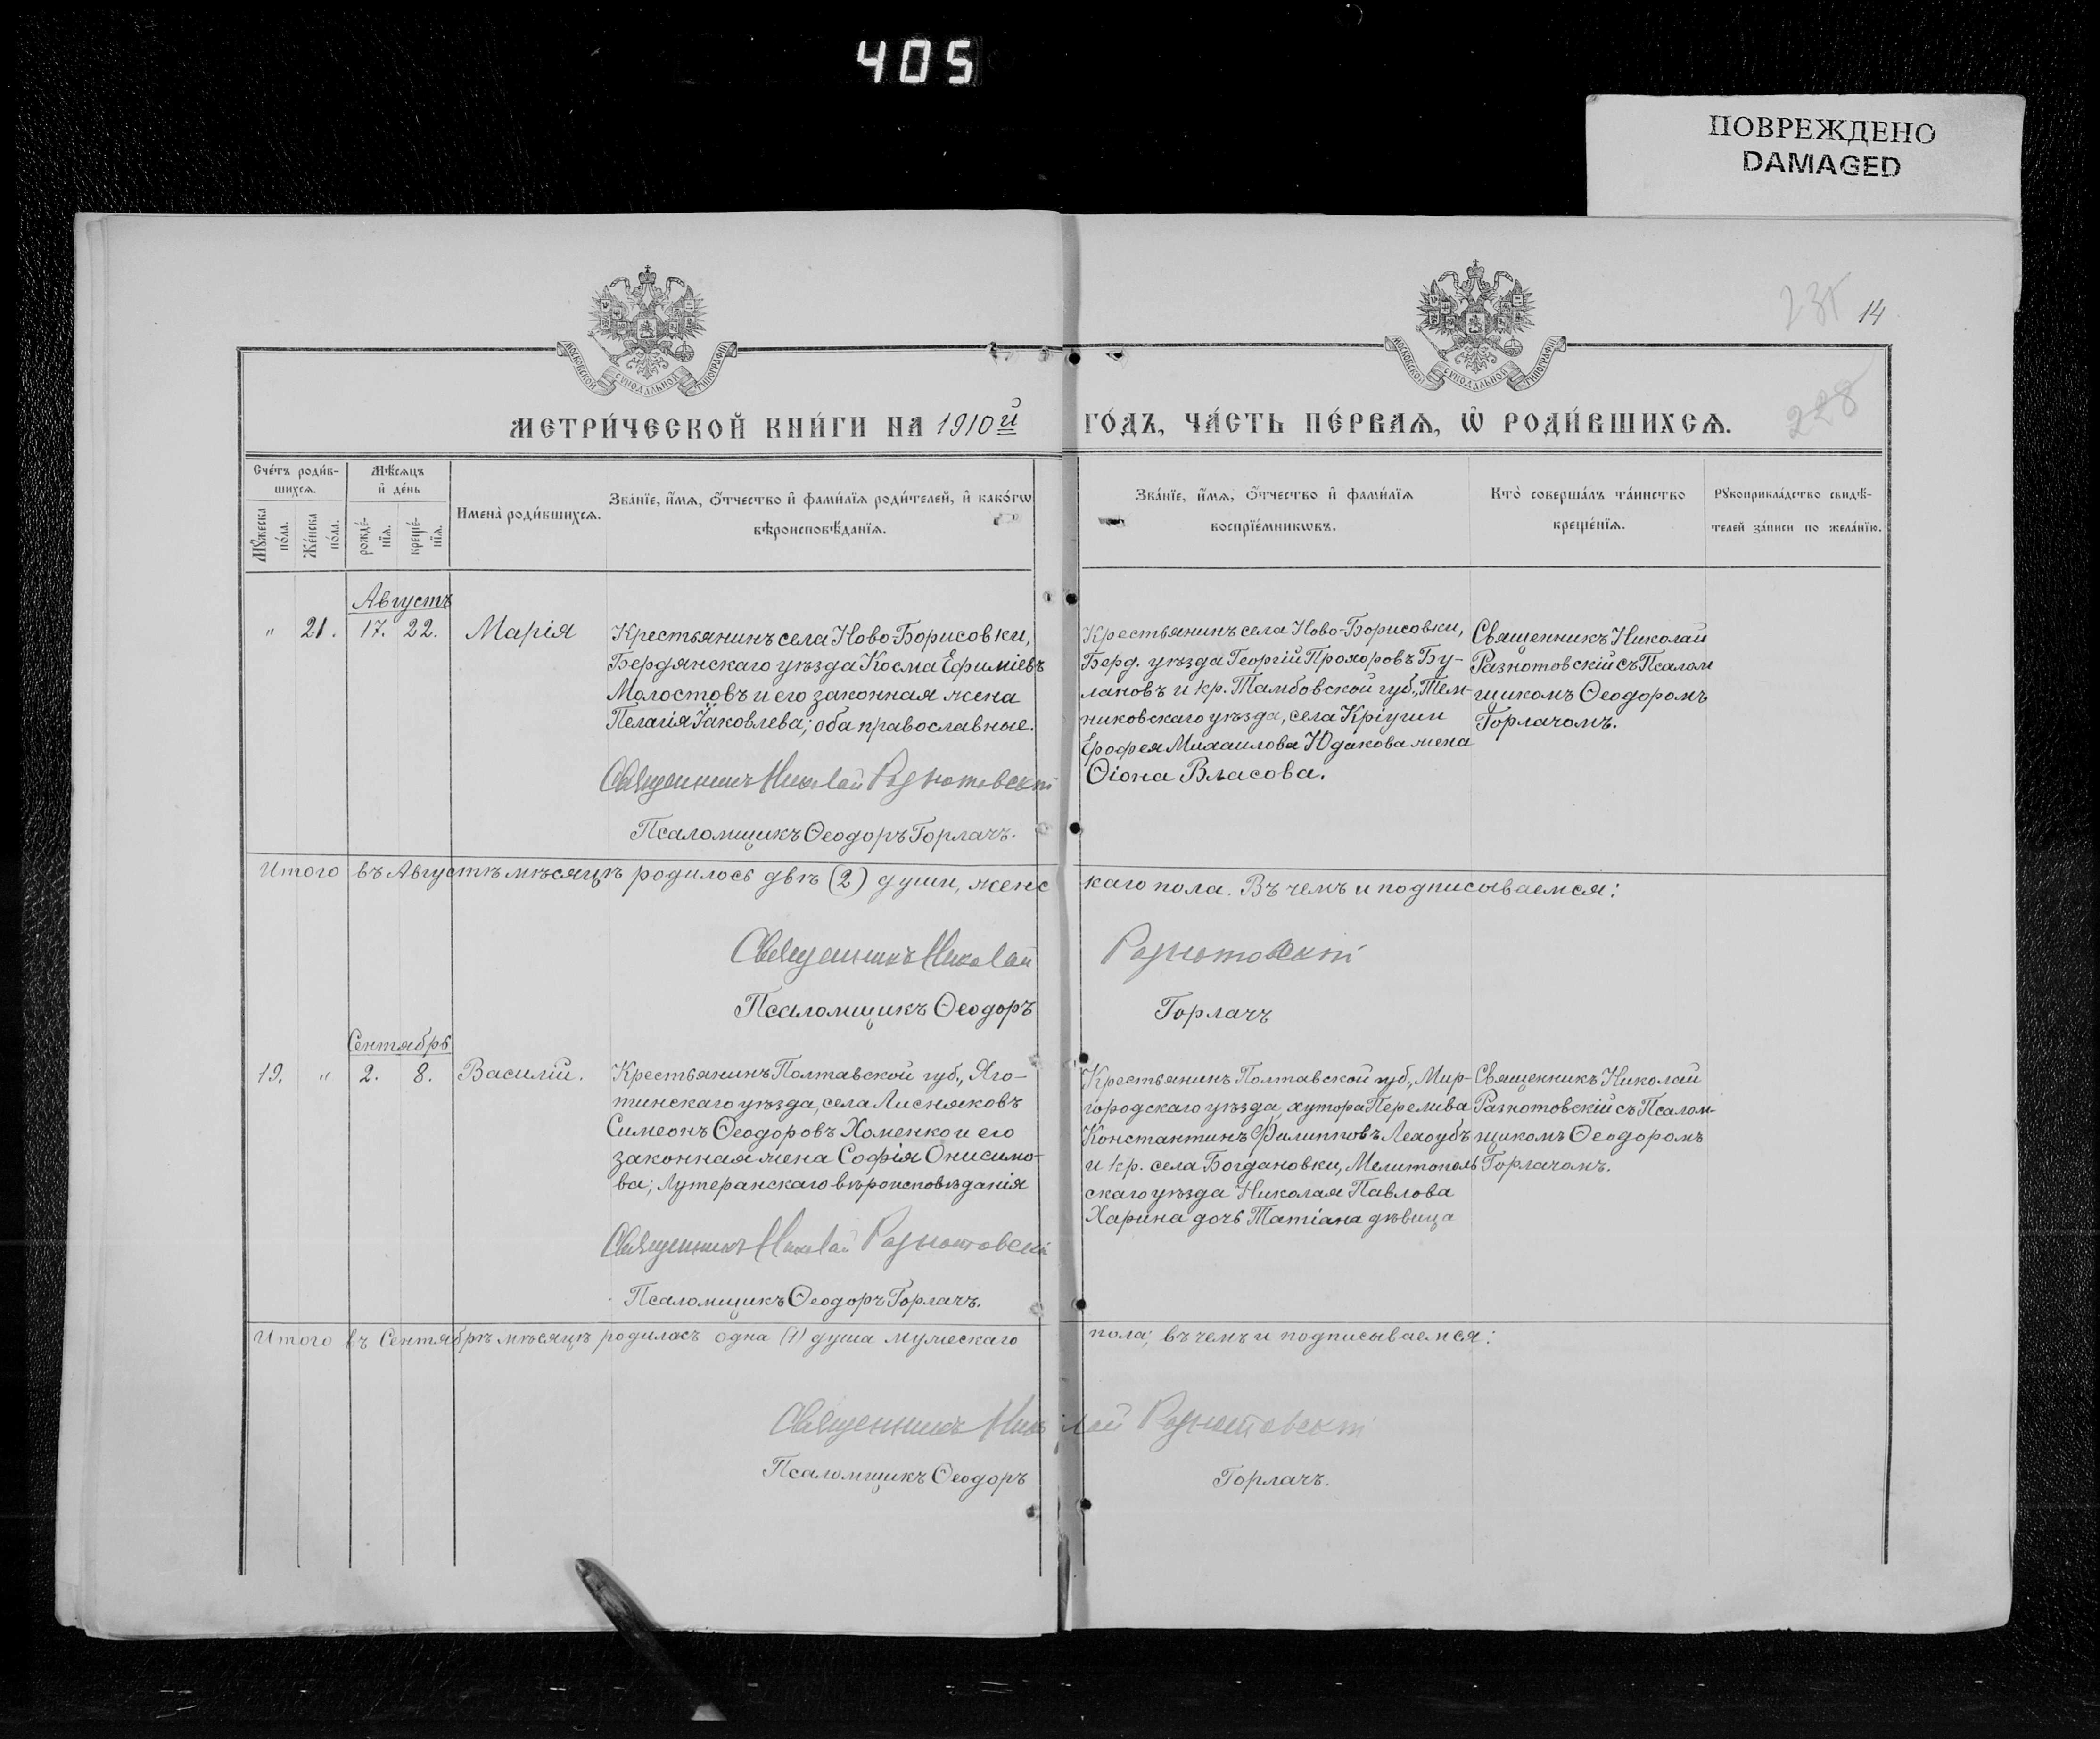 405
ПОВРЕЖДЕНО
DAMAGED
14
228
МОСКОВСКОЙ СѴНОДАЛЬНОЙ ТИПОГРАФІИ
МОСКОВСКОЙ СѴНОДАЛЬНОЙ ТИПОГРАФІИ
МЕТРИ́ЧЕСКОЙ КНИ́ГИ НА 1910й ГО́ДЪ, ЧА́СТЬ ПЕ́РВАѦ, Ѡ РОДИ́ВШИХСѦ.
Сче́тъ роди́в-
шихсѧ.
Мꙋ́жеска по́ла.
Же́нска по́ла.
Мѣ́сѧцъ
и҆ де́нь
рожде́-
нїѧ.
креще́-
нїѧ.
Имена̀ роди́вшихсѧ.
Зва́нїе, и҆́мѧ, ѻ҆́тчество и҆ фами́лїѧ роди́телей, и҆ како́гѡ
вѣроисповѣ́данїѧ.
Зва́нїе, и҆́мѧ, ѻ҆́тчество и҆ фами́лїѧ
воспрїе́мникѡвъ.
Кто̀ соверша́лъ та́инство
креще́нїѧ.
Рꙋкоприкла́дство свидѣ́-
телей за́писи по жела́нїю.
Августъ
" 21. 17. 22. Марія
Крестьянинъ села Ново-Борисовки,
Бердянскаго уѣзда Косма Ефиміевъ
Молостовъ и его законная жена
Пелагія Іаковлева; оба православные.
Священникъ Николай Разнотовскій
Псаломщикъ Ѳеодоръ Горлачъ.
Крестьянинъ села Ново-Борисовки,
Берд. уѣзда Георгій Прохоровъ Бу-
лановъ и кр. Тамбовской губ., Тем-
никовскаго уѣзда, села Кріуши
Ерофея Михаилова Юдакова жена
Ѳіона Власова.
Священникъ Николай
Разнотовскій съ Псалом
щикомъ Ѳеодоромъ
Горлачомъ.
Итого въ Августѣ мѣсяцѣ родилось двѣ (2) души, женс
каго пола. Въ чемъ и подписываемся:
Священникъ Николай Разнотовскій
Псаломщикъ Ѳеодоръ Горлачъ
Сентябрь
19. " 2. 8. Василій.
Крестьянинъ Полтавской губ., Яго-
тинскаго уѣзда, села Лисняковъ
Симеонъ Ѳеодоровъ Хоменко и его
законная жена Софія Онисимо-
ва; Лутеранскаго вѣроисповѣданія
Священникъ Николай Разнотовскій
Псаломщикъ Ѳеодоръ Горлачъ.
Крестьянинъ Полтавской губ., Мир-
городскаго уѣзда, хутора Перелива
Константинъ Филипповъ Лехоубъ
и кр. села Богдановки, Мелитополь
скаго уѣзда Николая Павлова
Харина дочь Татіана дѣвица
Священникъ Николай
Разнотовскій съ Псалом-
щикомъ Ѳеодоромъ
Горлачомъ.
Итого въ Сентябрѣ мѣсяцѣ родилась одна (1) душа мужескаго
пола; въ чемъ и подписываемся:
Священникъ Николай Разнотовскій
Псаломщикъ Ѳеодоръ Горлачъ.